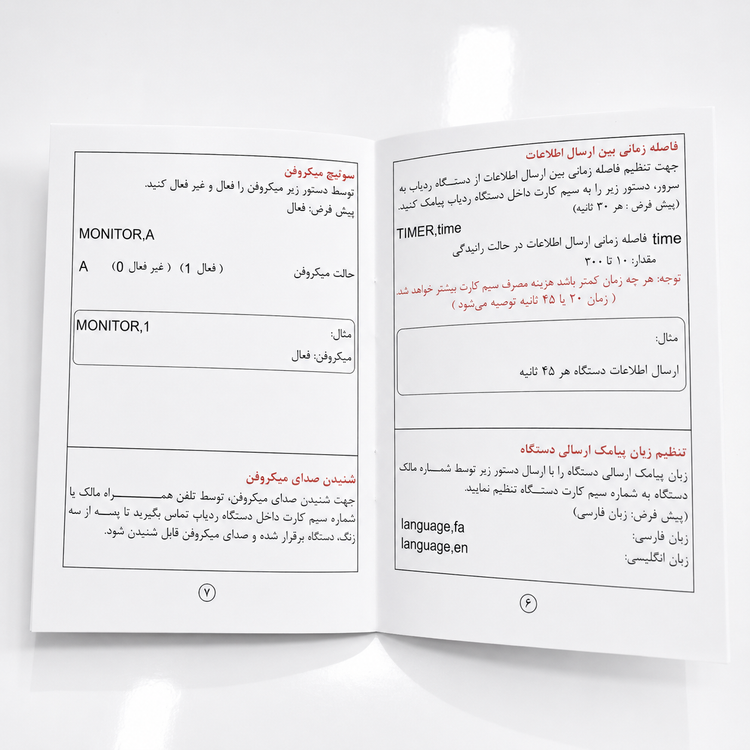 فاصله زمانی بین ارسال اطلاعات
جهت تنظیم فاصله زمانی بین ارسال اطلاعات از دستگاه ردیاب به
سرور، دستور زیر را به سیم کارت داخل دستگاه ردیاب پیامک کنید.
(پیش فرض : هر ۳۰ ثانیه)
TIMER,time
time فاصله زمانی ارسال اطلاعات در حالت رانیدگی
مقدار: ۱۰ تا ۳۰۰
توجه: هر چه زمان کمتر باشد هزینه مصرف سیم کارت بیشتر خواهد شد.
( زمان ۲۰ یا ۴۵ ثانیه توصیه می‌شود )
مثال:
ارسال اطلاعات دستگاه هر ۴۵ ثانیه
تنظیم زیان پیامک ارسالی دستگاه
زبان پیامک ارسالی دستگاه را با ارسال دستور زیر توسط شماره مالک
دستگاه به شماره سیم کارت دستگاه تنظیم نمایید.
(پیش فرض: زبان فارسی)
زبان فارسی: language,fa
زبان انگلیسی: language,en
۶
سوئیچ میکروفن
توسط دستور زیر میکروفن را فعال و غیر فعال کنید.
پیش فرض: فعال
MONITOR,A
حالت میکروفن ( فعال 1) ( غیر فعال 0) A
مثال: MONITOR,1
میکروفن: فعال
شنیدن صدای میکروفن
جهت شنیدن صدای میکروفن، توسط تلفن همراه مالک یا
شماره سیم کارت داخل دستگاه ردیاب تماس بگیرید تا پسه از سه
زنگ، دستگاه برقرار شده و صدای میکروفن قابل شنیدن شود.
۷